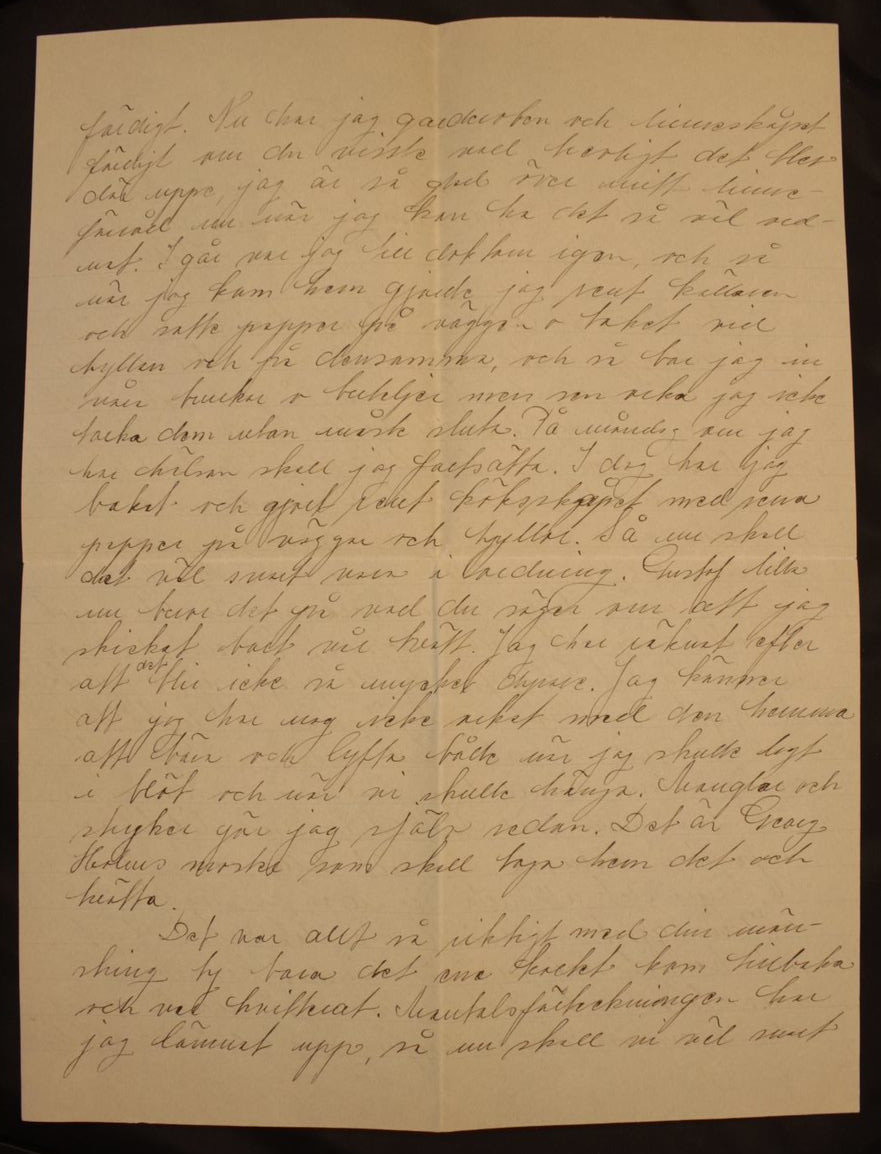 färdigt. Nu har jag garderoben och linneskåpet
färdigt om du visste vad herligt det blev
där uppe, jag är så glad över mitt linne-
förråd nu när jag kan ha det så väl ord-
nat. I går var jag till doktorn igen, och så
när jag kom hem gjorde jag rent källaren
och satte papper på väggen o taket vid
hyllan och på densamma, och så bar jag in
våra burkar o buteljer men sen orka jag icke
torka dem utan måste sluta. På måndag om jag
har hälsan skall jag fortsätta. I dag har jag
bakat och gjort rent köksskåpet med rena
papper på väggar och hyllor. Så nu skall
det väl snart vara i ordning. Gustaf lilla
nu beror det på vad du säger om att jag
skickat bort vår tvätt. Jag har räknat efter
att det blir icke så mycket dyrare. Jag känner
att jag har nog icke orkat med den hemma
att bära och lyfta både när jag skulle lagt
i blöt och när vi skulle hänga. Manglar och
stryker gör jag själv sedan. Det är Georg
moster som skall taga hem det och
tvätta.
Det var allt så riktigt med din mön-
string ty bara det ena kortet kom tillbaka
och var kvitterat. Mantalsförteckningen har
jag lämnat upp, så nu skall vi väl snart